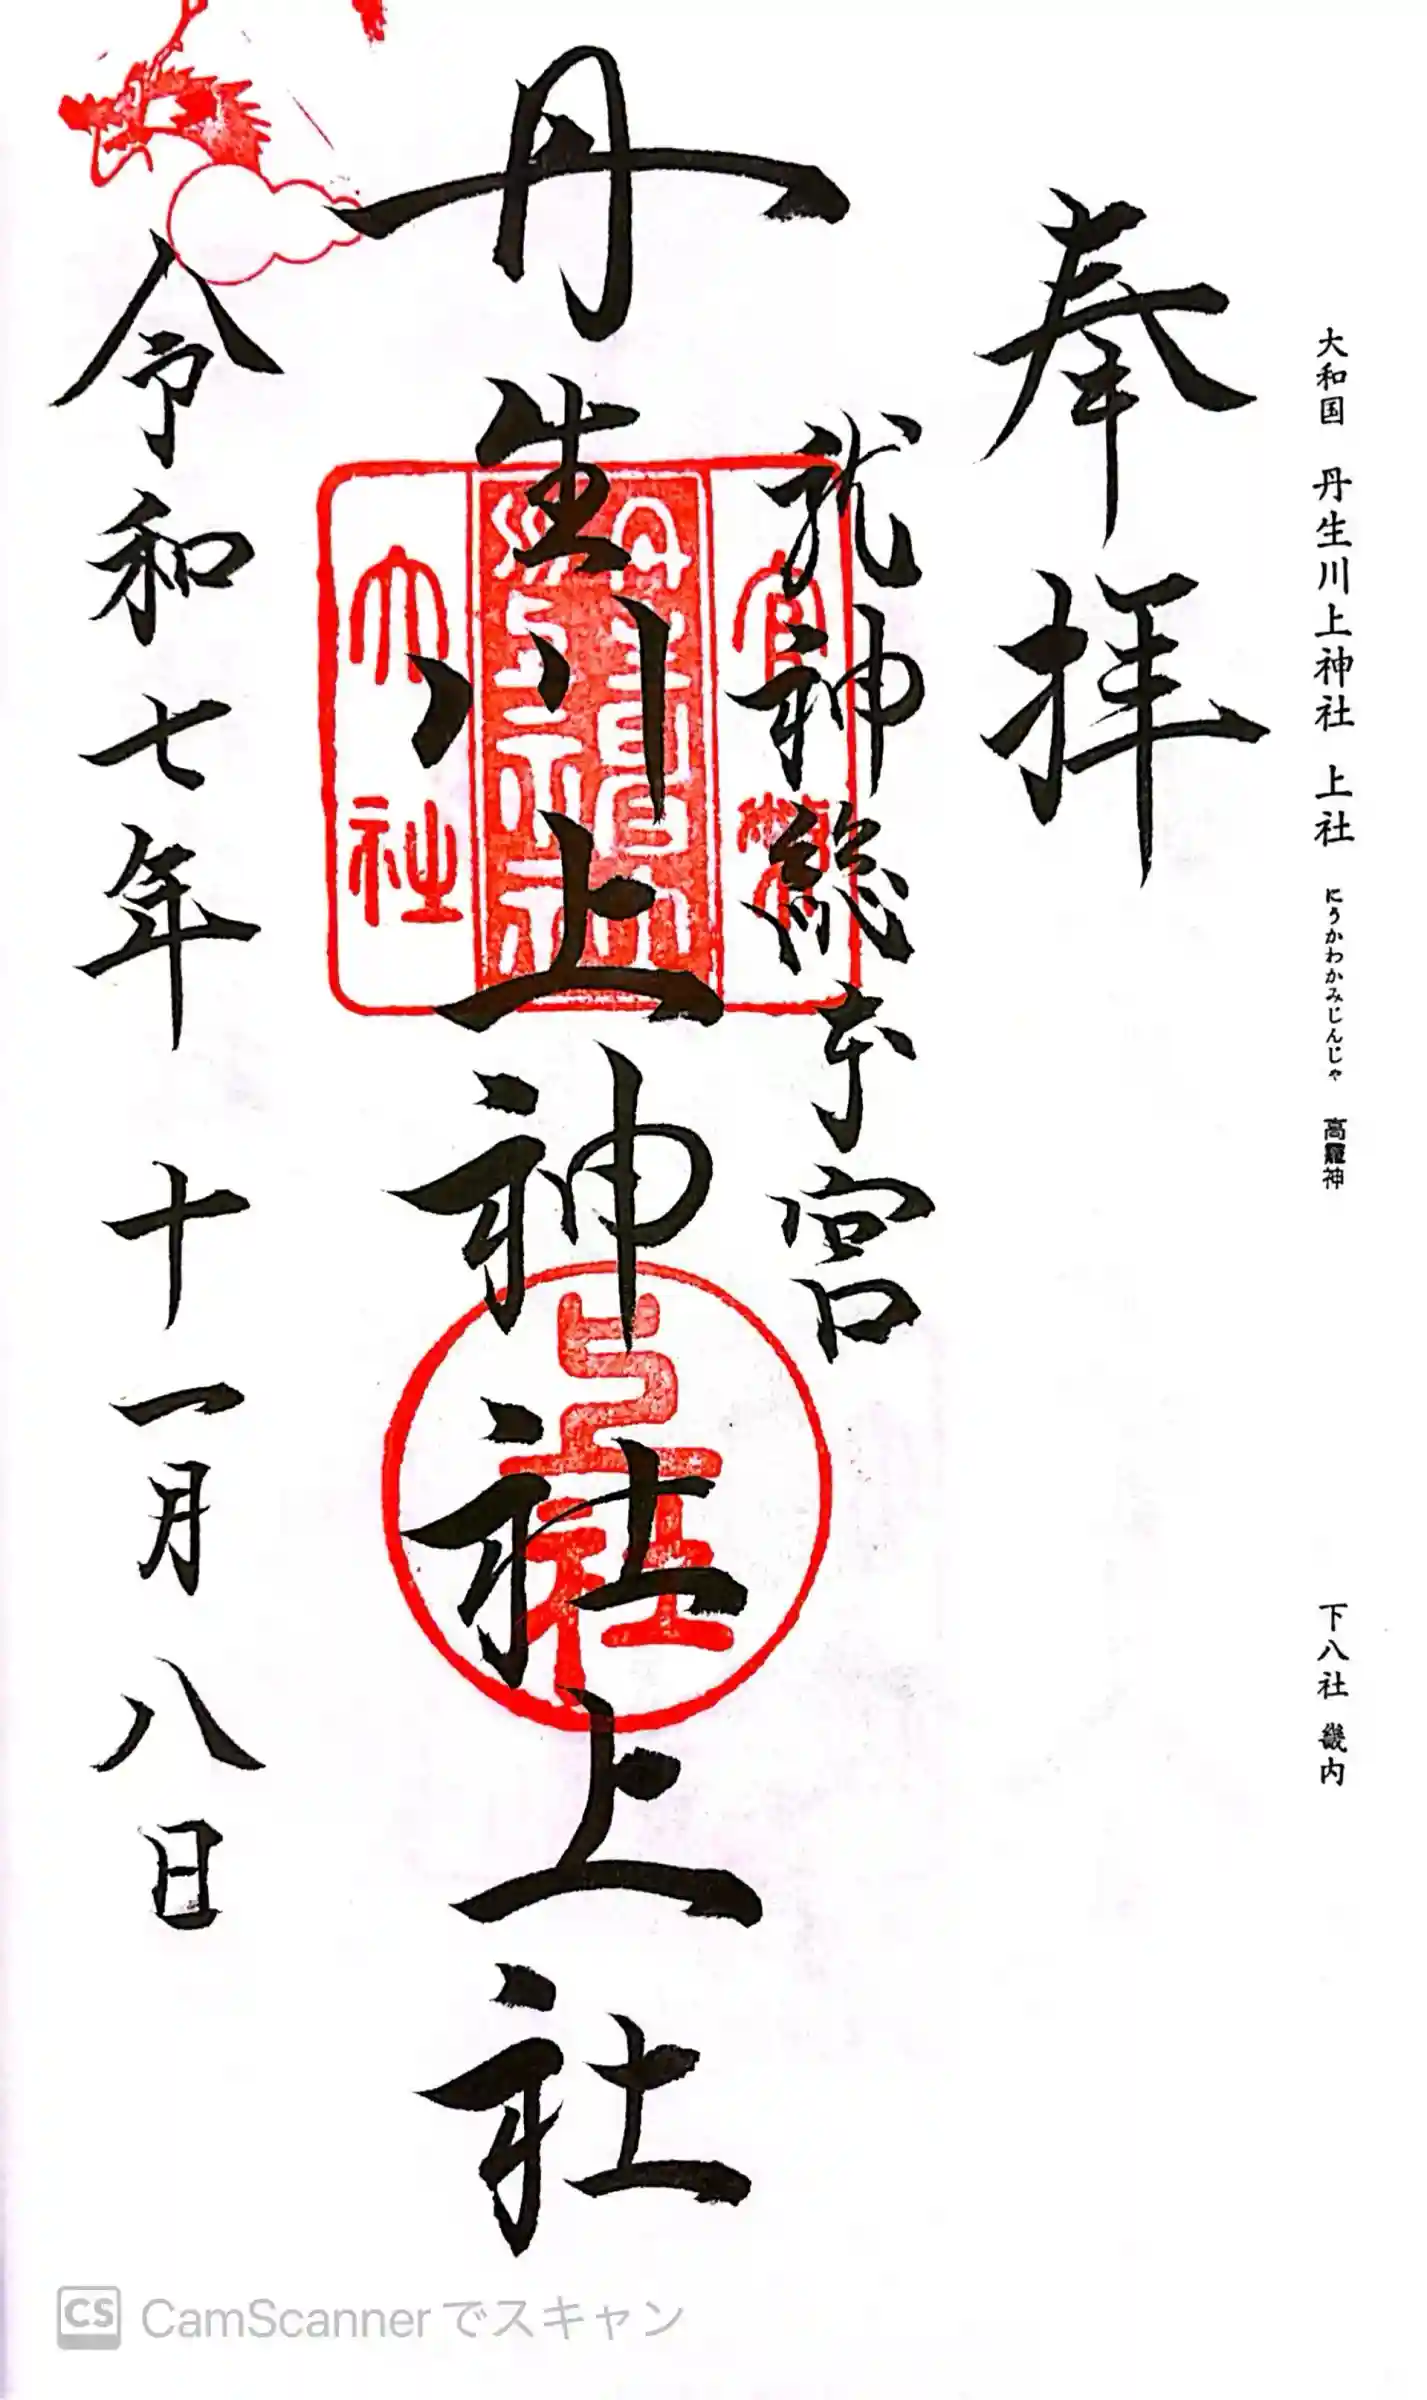 大和国 丹生川上神社 上社 にうかわかみじんじゃ 高龗神
下八社 畿内
奉拝
龍神総本宮
官幣
丹生川上神社
大社
丹生川上神社上社
上社
令和七年十一月八日
CamScannerでスキャン